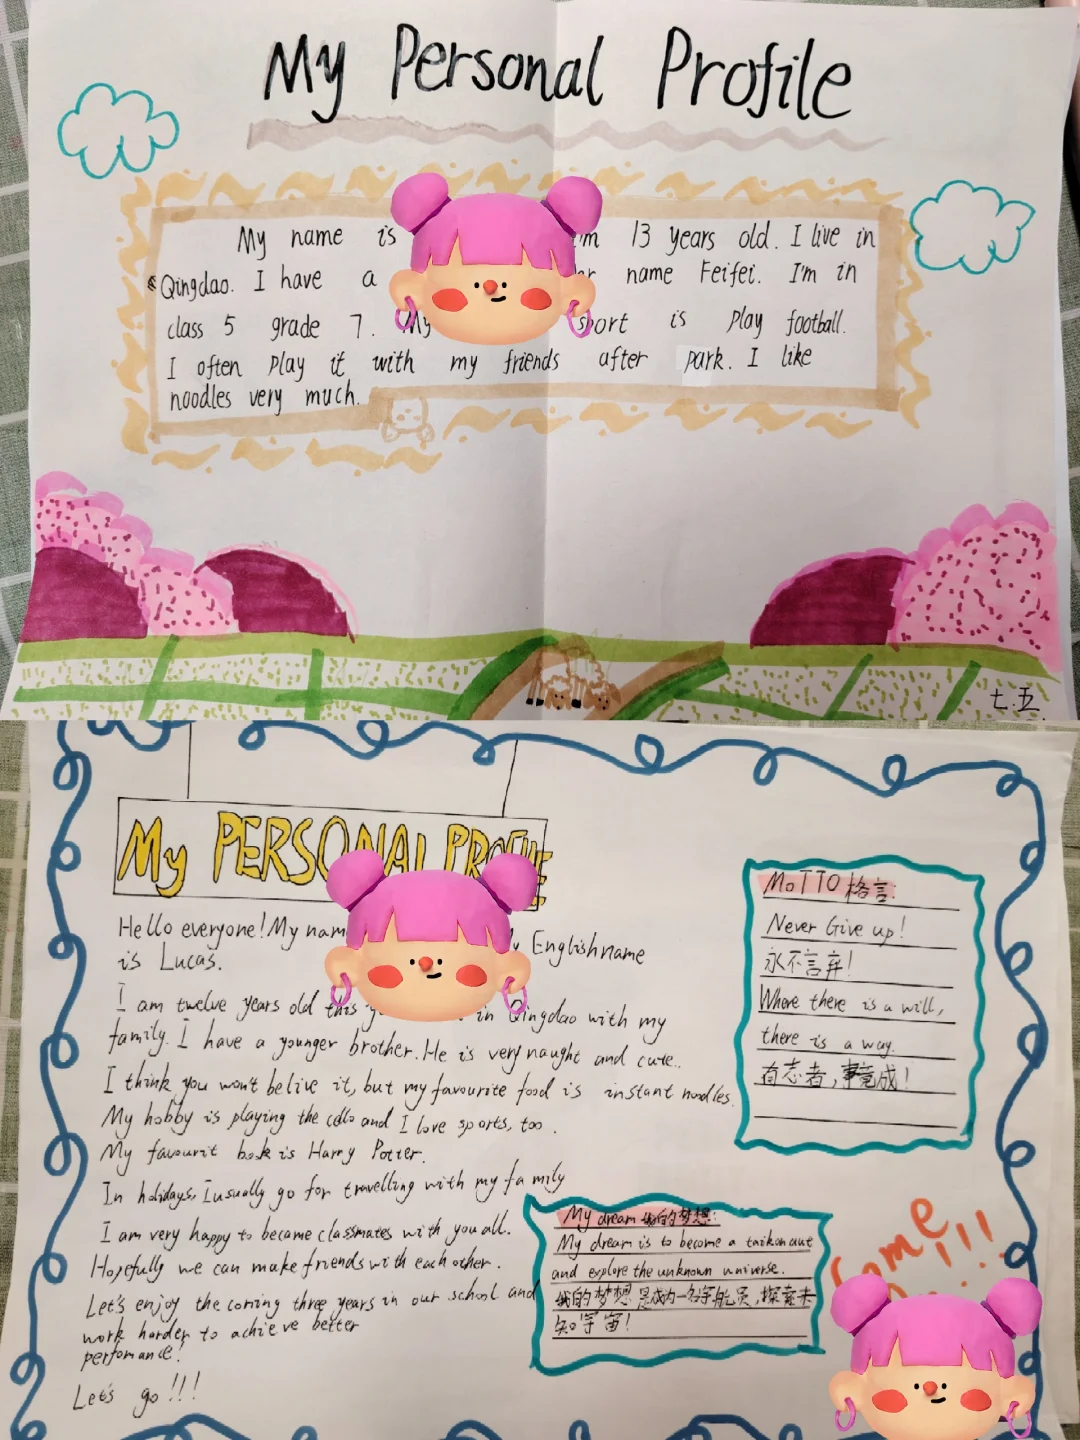 My Personal Profile
My name is 13 years old. I live in
Qingdao. I have a name Feifei. I'm in
class 5 grade 7. My sport is play football.
I often play it with my friends after park. I like
noodles very much.
七.五
My PERSONAL PROFILE
Hello everyone! My English name
is Lucas.
I am twelve years old this in Qingdao with my
family. I have a younger brother. He is very naught and cute.
I think you won't belive it, but my favourite food is instant noodles.
My hobby is playing the cello and I love sports, too.
My favourit book is Harry Potter.
In holidays, I usually go for travelling with my family
I am very happy to became classmates with you all.
Hopefully we can make friends with each other.
Let's enjoy the coming three years in our school and
work harder to achieve better
perfomance!
Let's go!!!
MoTTO 格言:
Never Give up!
永不言弃!
Where there is a will,
there is a way.
有志者,事竟成!
My dream 我的梦想:
My dream is to become a taikonaut
and explore the unknown universe.
我的梦想是成为一名宇航员,探索未
知宇宙!
!!!